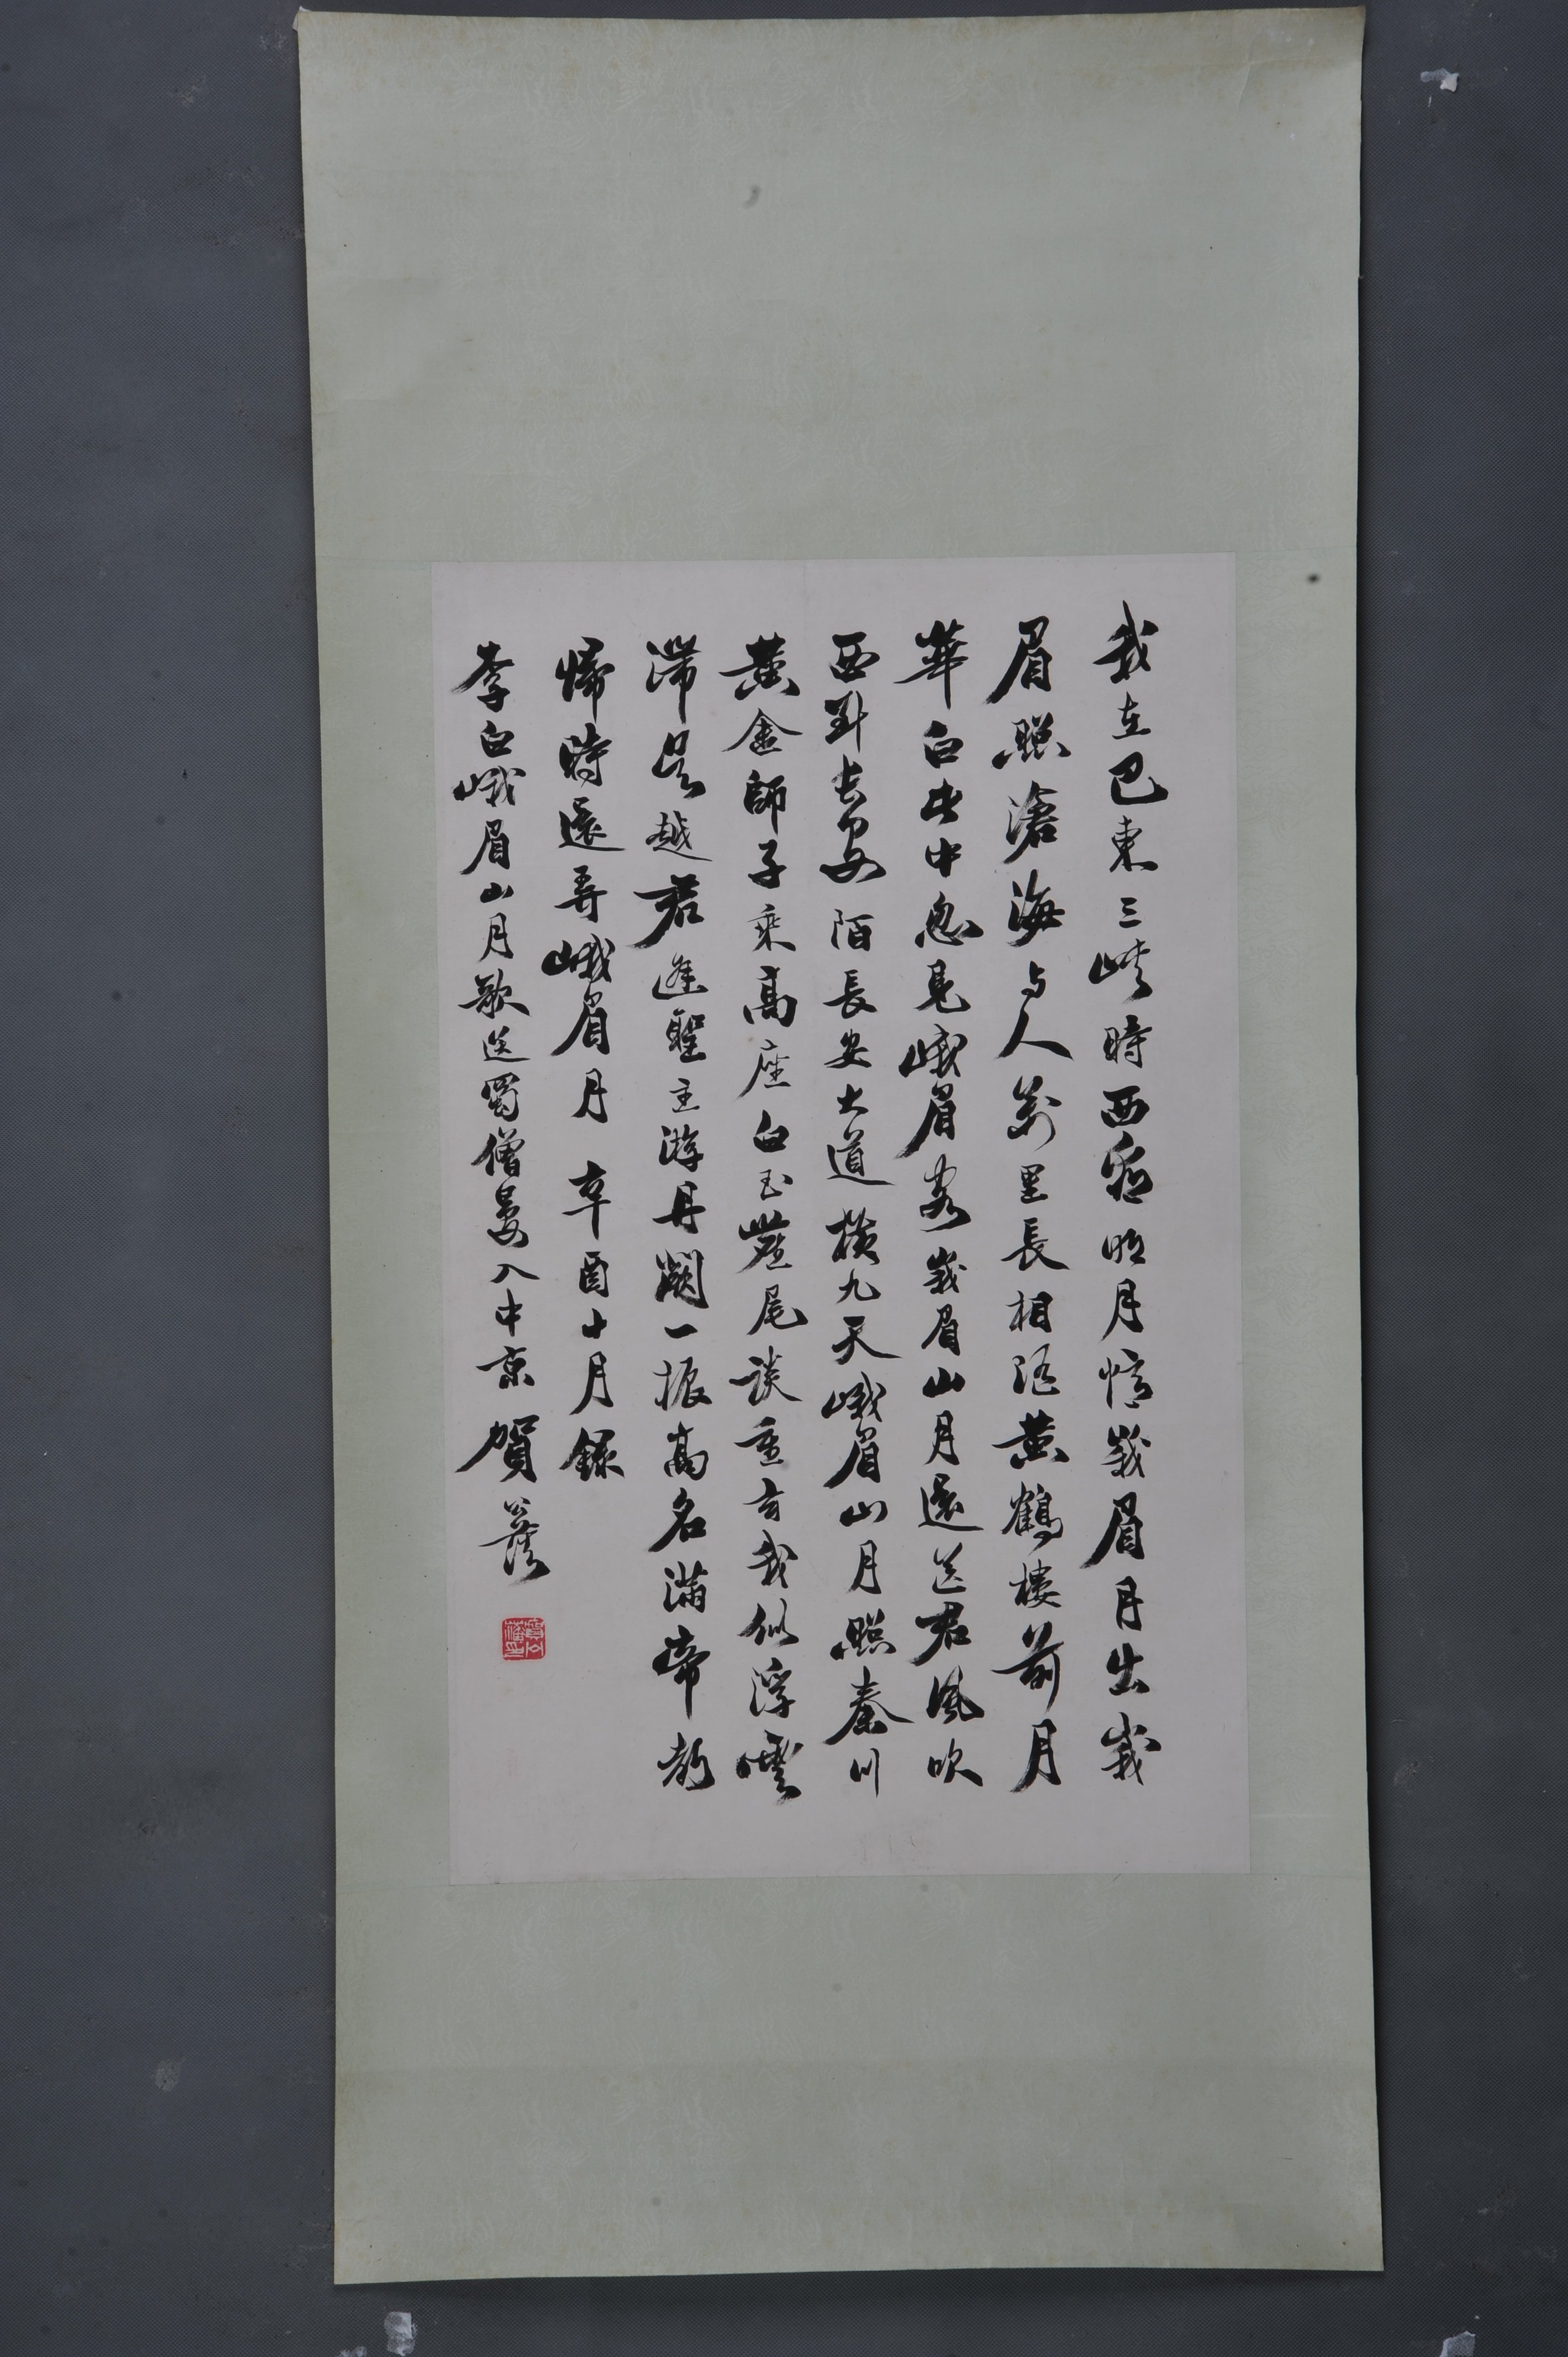 我在巴東三峽時西看明月憶峩眉月出峩
眉照滄海与人萬里長相隨黃鶴樓前月
華白此中忽見峨眉客峩眉山月還送君風吹
西到長安陌長安大道橫九天峨眉山月照秦川
黃金師子乘高座白玉麈尾談重玄我似浮雲
滯吳越君逢聖主游丹闕一振高名滿帝都
歸時還弄峨眉月 辛酉十月錄
李白峨眉山月歌送蜀僧晏入中京 賀